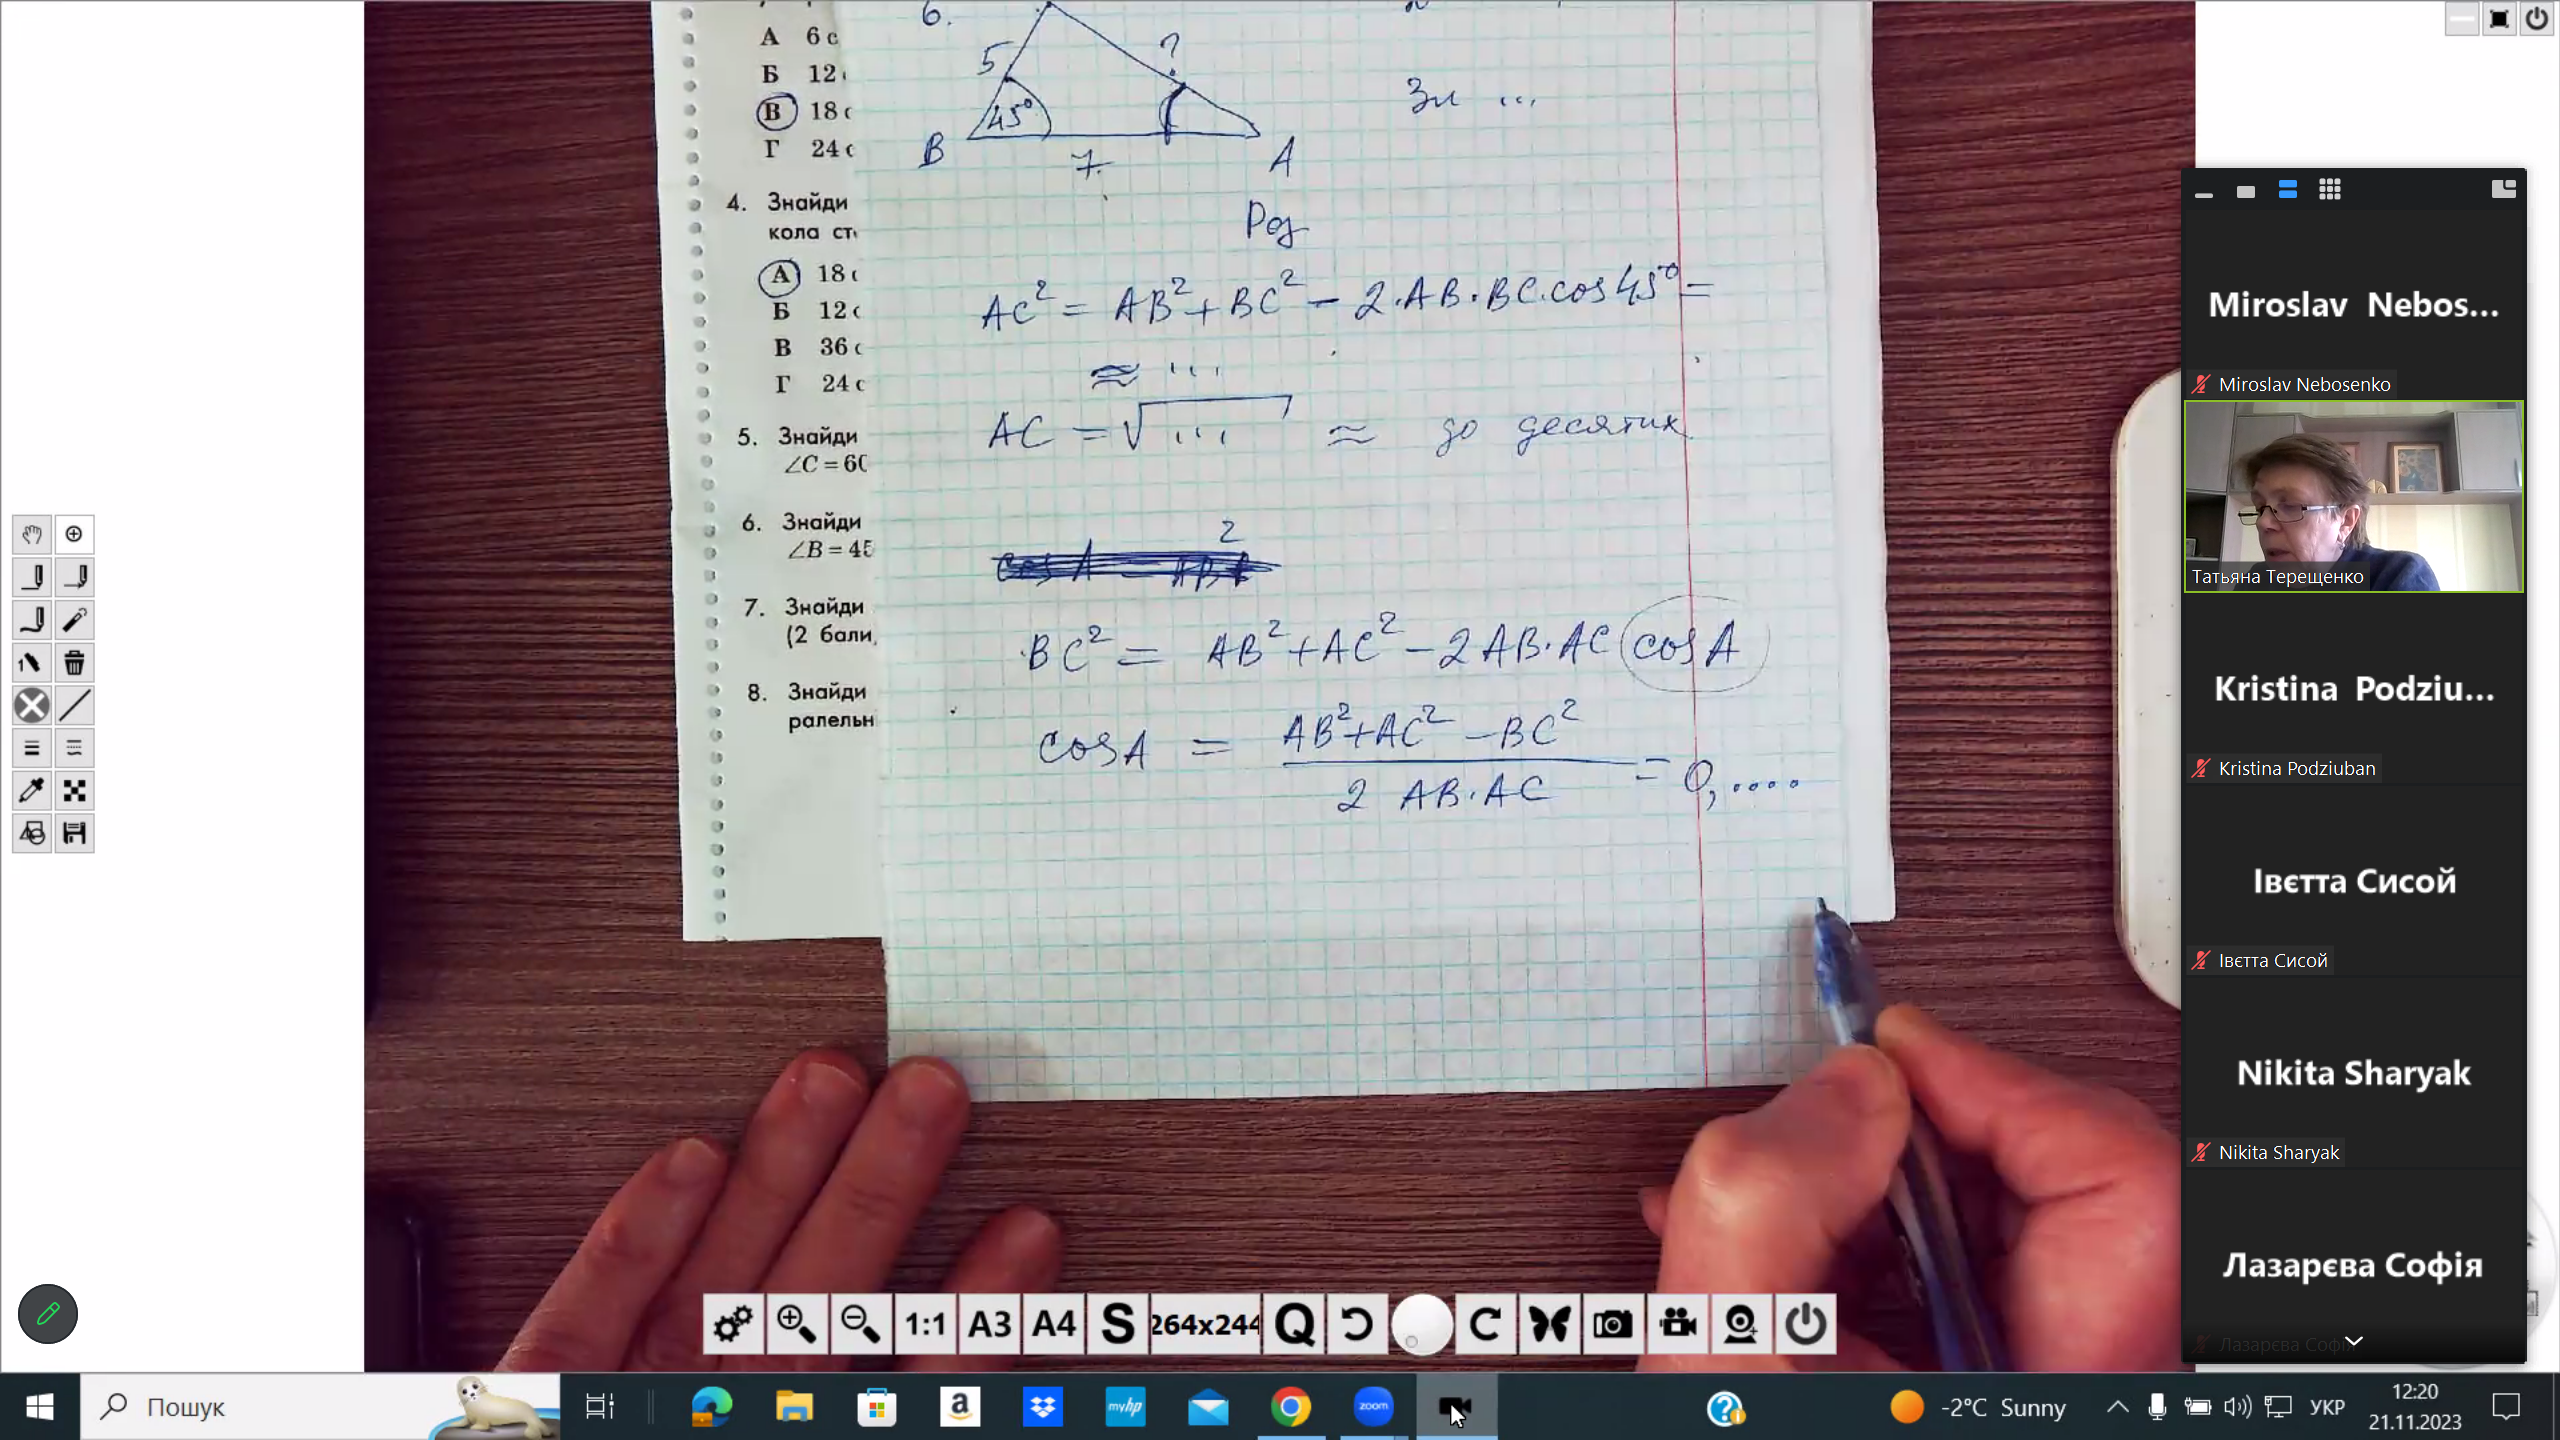 А 6 с
Б 12
В 18
Г 24 с
4. Знайди
кола ст
А 18
Б 12
В 36
Г 24
5. Знайди
∠C = 60
6. Знайди
∠B = 45
7. Знайди
(2 бали,
8. Знайди
ралельн
6.
5
?
45°
B
7
A
Зн ...
Роз
AC² = AB² + BC² - 2·AB·BC·cos45° =
≈ ...
AC = √... ≈ до десятих
2
BC² = AB² + AC² - 2AB·AC cosA
cosA = AB² + AC² - BC² / 2 AB·AC = 0,....
Miroslav Nebos...
Miroslav Nebosenko
Татьяна Терещенко
Kristina Podziu...
Kristina Podziuban
Івєтта Сисой
Івєтта Сисой
Nikita Sharyak
Nikita Sharyak
Лазарєва Софія
Лазарєва Софія
1:1
A3
A4
S
264x244
Q
Пошук
a
myhp
zoom
-2°C Sunny
УКР
12:20
21.11.2023